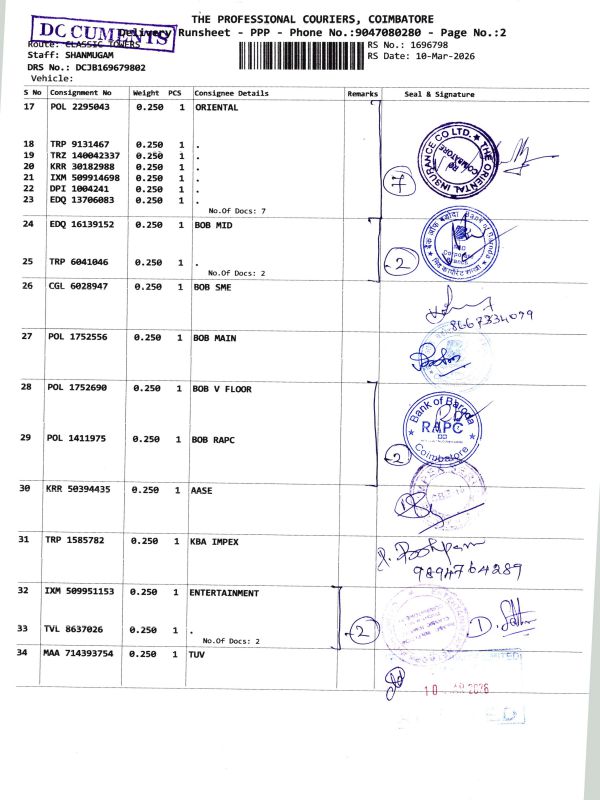 THE PROFESSIONAL COURIERS, COIMBATORE
DOCUMENTS
Delivery Runsheet - PPP - Phone No.:9047080280 - Page No.:2
Route: CLASSIC TOWERS
RS No.: 1696798
Staff: SHANMUGAM
RS Date: 10-Mar-2026
DRS No.: DCJB169679802
Vehicle:
S No Consignment No Weight PCS Consignee Details Remarks Seal & Signature
17 POL 2295043 0.250 1 ORIENTAL
18 TRP 9131467 0.250 1 .
19 TRZ 140042337 0.250 1 .
20 KRR 30182988 0.250 1 .
21 IXM 509914698 0.250 1 .
22 DPI 1004241 0.250 1 .
23 EDQ 13706083 0.250 1 .
No.Of Docs: 7
7
THE ORIENTAL INSURANCE CO LTD.
COIMBATORE
24 EDQ 16139152 0.250 1 BOB MID
25 TRP 6041046 0.250 1 .
No.Of Docs: 2
2
Bank of Baroda
26 CGL 6028947 0.250 1 BOB SME
8667334099
27 POL 1752556 0.250 1 BOB MAIN
28 POL 1752690 0.250 1 BOB V FLOOR
29 POL 1411975 0.250 1 BOB RAPC
2
Bank of Baroda
RAPC
Coimbatore
30 KRR 50394435 0.250 1 AASE
31 TRP 1585782 0.250 1 KBA IMPEX
9894764289
32 IXM 509951153 0.250 1 ENTERTAINMENT
33 TVL 8637026 0.250 1 .
No.Of Docs: 2
2
34 MAA 714393754 0.250 1 TUV